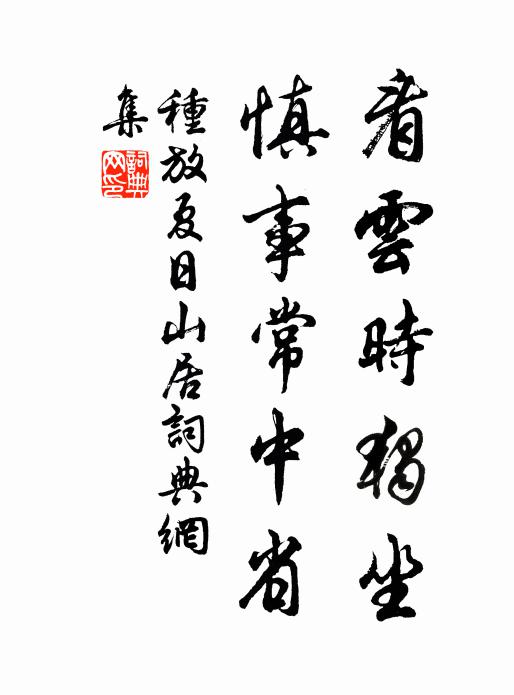 看雲時獨坐
慎事常中省
種放夏日山居詞典網
集
詞典
网印